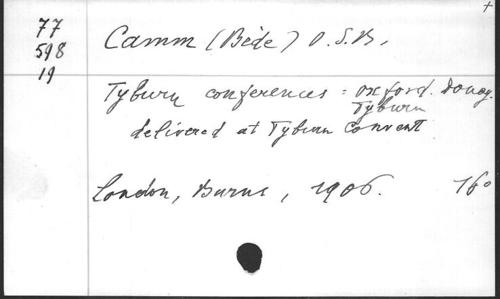 +
77
598
19
Camm (Bède) O.S.B.
Tyburn conferences : Oxford. Douay.
Tyburn
delivered at Tyburn Convent
London, Burns, 1906. 16°